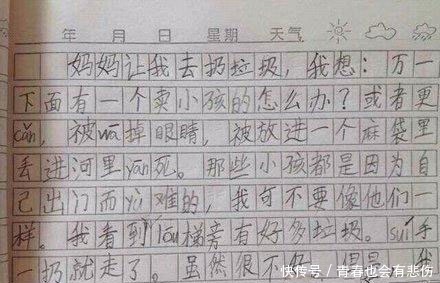 年 月 日 星期 天气
妈妈让我去扔垃圾，我想：万一
下面有一个卖小孩的怎么办？或者更
cǎn，被wā掉眼睛，被放进一个麻袋里
丢进河里yān死。那些小孩都是因为自
己出门而yù难的，我可不要像他们一
样。我看到lóu梯旁有好多垃圾。suí手
一扔就走了。虽然很不好，但是，我
快传号/青春也会有悲伤